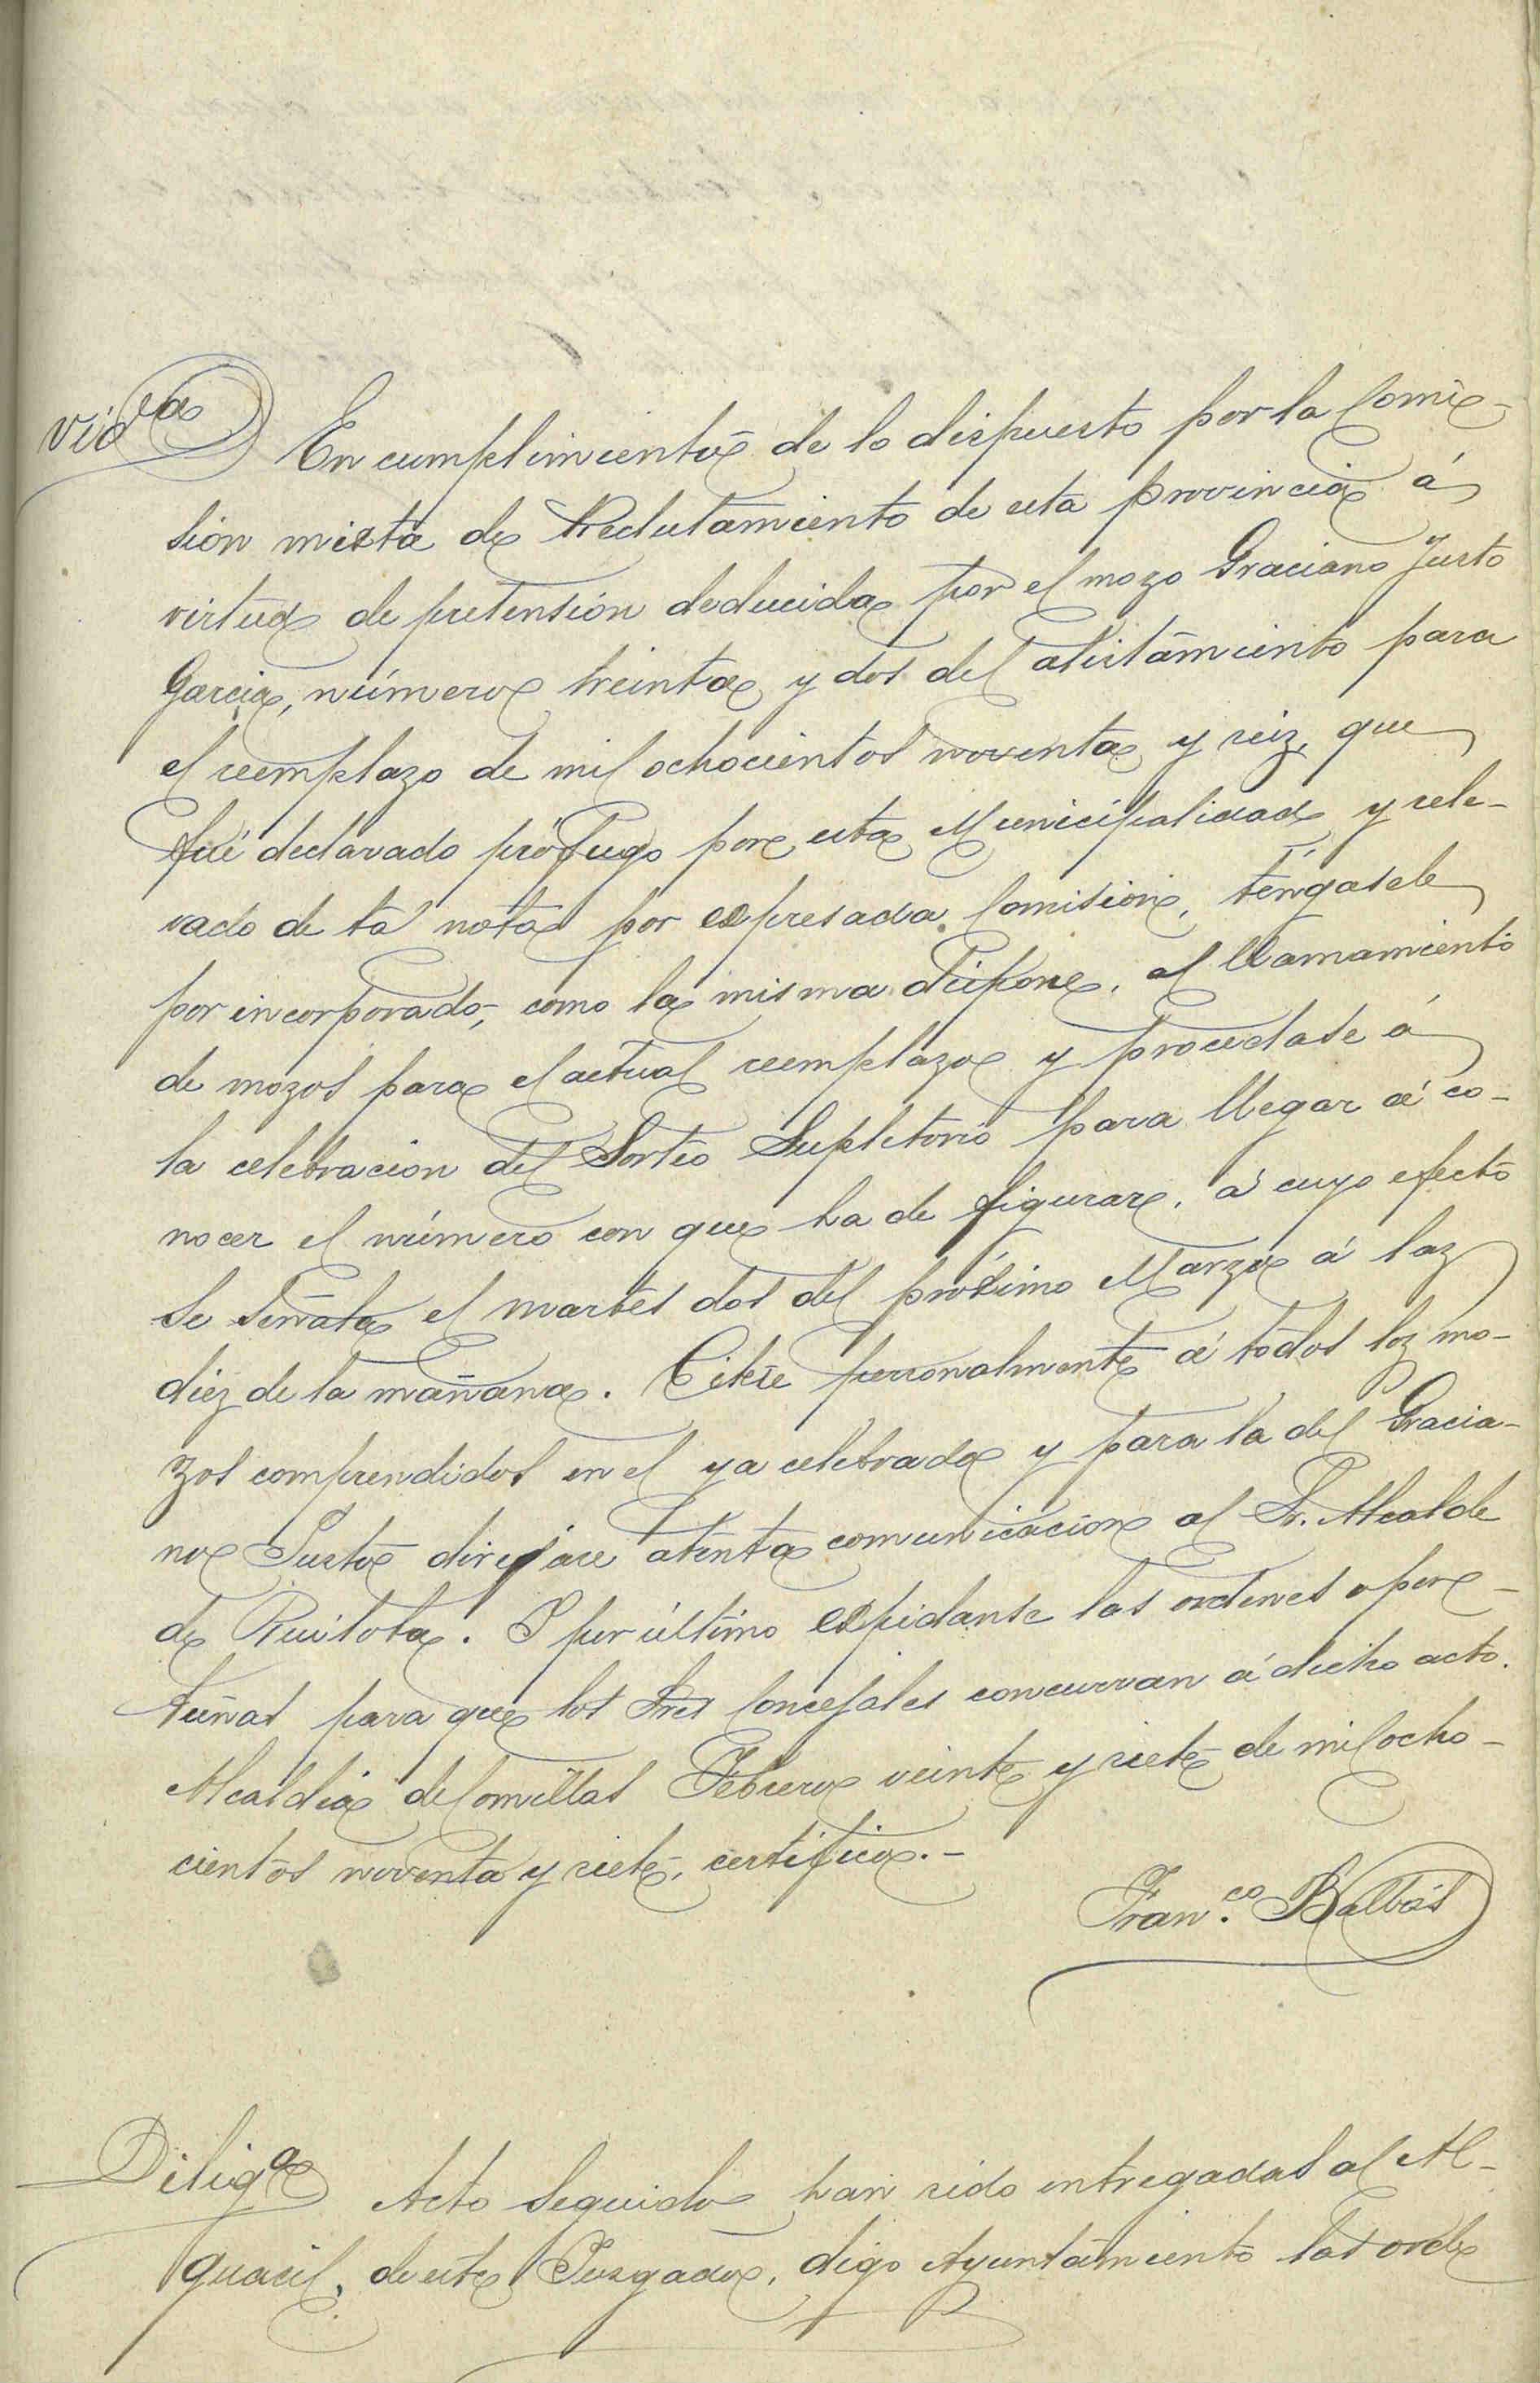 Vid^cia
En cumplimiento de lo dispuesto por la Comi-
sión mixta de Reclutamiento de esta provincia á
virtud de pretensión deducida por el mozo Graciano Justo
Garcia, número treinta y dos del alistamiento para
el reemplazo de mil ochocientos noventa y seiz, que
fué declarado prófugo por esta Municipalidad y rele-
vado de tal nota por expresada Comisión, téngasele
por incorporado, como la misma dispone, al llamamiento
de mozos para el actual reemplazo y procedase á
la celebracion del Sorteo Supletorio para llegar á co-
nocer el número con que ha de figurar, á cuyo efecto
se señala el martes dos del próximo Marzo á laz
diez de la mañana. Citese personalmente á todos loz mo-
zos comprendidos en el ya celebrado y para la del Gracia-
no Justo dirijase atenta comunicación al Sr. Alcalde
de Ruiloba. Y por último expidanse las ordenes opor-
tunas para que los Sres Concejales concurran á dicho acto.
Alcaldia de Comillas Febrero veinte y siete de mil ocho-
cientos noventa y siete, certifico.-
Fran.^co Balbás
Dilig^a
Acto seguido han sido entregadas al Al-
guacil, de este Juzgado, digo Ayuntamiento las orde